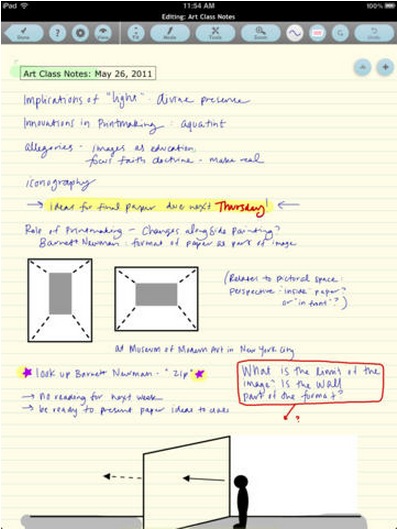 iPad
11:54 AM
100%
Editing: Art Class Notes
Done
View
Mode
Tools
Zoom
Undo
Art Class Notes: May 26, 2011
Implications of "light": divine presence
Innovations in Printmaking: aquatint
allegories - images as education
focus faith doctrine - make real
iconography
→ ideas for final paper due next Thursday! ←
Role of Printmaking - Changes alongside painting?
Barnett Newman: format of paper as part of image
(Relates to pictorial space:
perspective "inside" paper?
or "in front"?)
at Museum of Modern Art in New York City
★ look up Barnett Newman - "Zip" ★
What is the limit of the
image? Is the wall
part of the format?
→ no reading for next week
→ be ready to present paper ideas to class
?